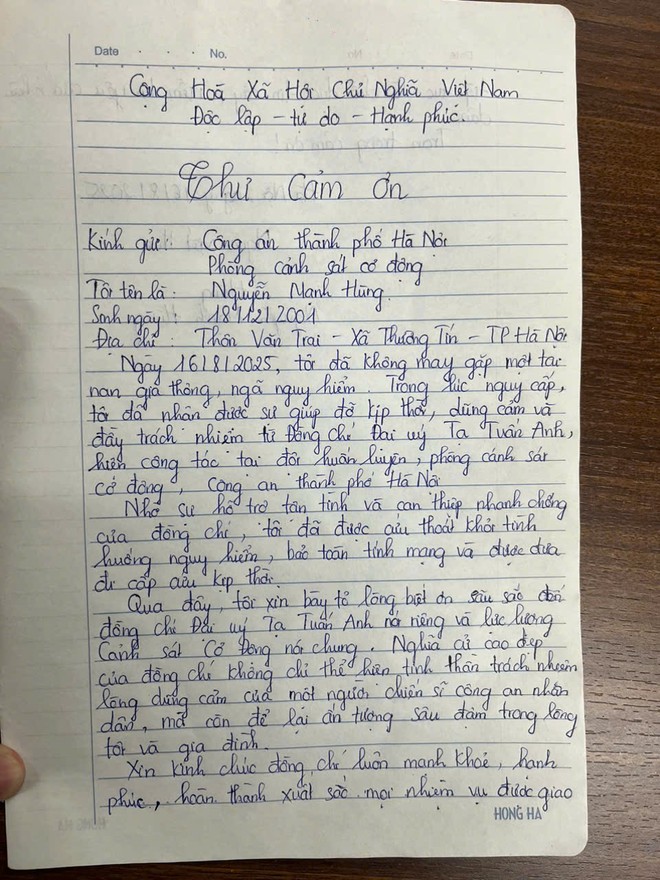 Date No.
Cộng Hoà Xã Hội Chủ Nghĩa Việt Nam
Độc lập - tự do - Hạnh phúc.
Thư cảm ơn
Kính gửi: Công an thành phố Hà Nội
Phòng cảnh sát cơ động
Tôi tên là: Nguyễn Mạnh Hùng.
Sinh ngày: 18/12/2001
Địa chỉ: Thôn Văn Trai - Xã Thường Tín - TP Hà Nội
Ngày 16/8/2025, tôi đã không may gặp một tai
nạn gia thông, ngã nguy hiểm. Trong lúc nguy cấp,
tôi đã nhận được sự giúp đỡ kịp thời, dũng cảm và
đầy trách nhiệm từ Đồng chí Đại uý Tạ Tuấn Anh,
hiện công tác tại đội huấn luyện, phòng cảnh sát
cơ động, công an thành phố Hà Nội
Nhờ sự hỗ trợ tận tình và can thiệp nhanh chóng
của đồng chí, tôi đã được cứu thoát khỏi tình
huống nguy hiểm, bảo toàn tính mạng và được đưa
đi cấp cứu kịp thời.
Qua đây, tôi xin bày tỏ lòng biết ơn sâu sắc đến
đồng chí Đại uý Tạ Tuấn Anh nói riêng và lực lượng
Cảnh sát Cơ Động nói chung. Nghĩa cử cao đẹp
của đồng chí không chỉ thể hiện tinh thần trách nhiệm
lòng dũng cảm của một người chiến sĩ công an nhân
dân, mà còn để lại ấn tượng sâu đậm trong lòng
tôi và gia đình.
Xin kính chúc đồng chí luôn mạnh khoẻ, hạnh
phúc, hoàn thành xuất sắc mọi nhiệm vụ được giao
HONG HA